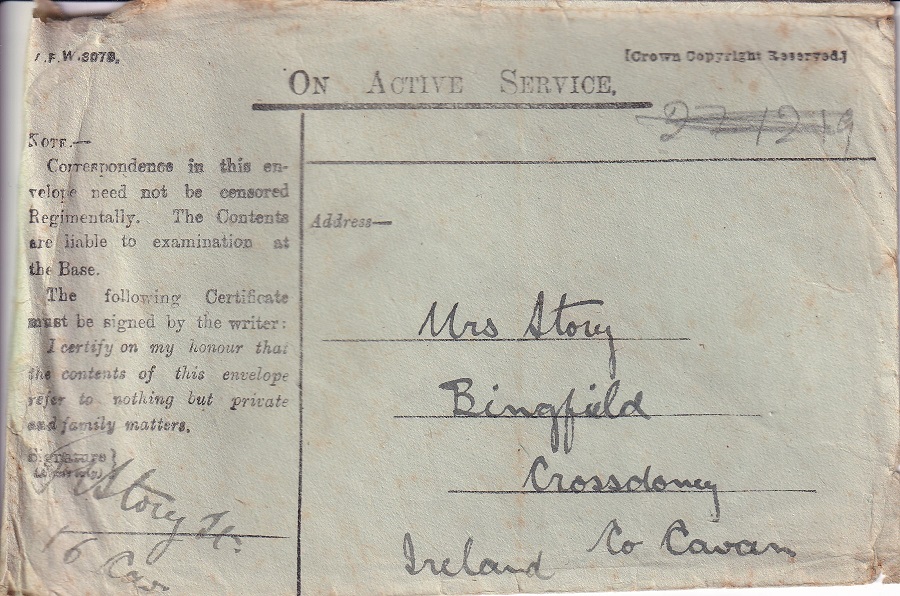 A.F.W.3078.
[Crown Copyright Reserved.]
ON ACTIVE SERVICE.
27 12 19
NOTE.—
Correspondence in this en-
velope need not be censored
Regimentally. The Contents
are liable to examination at
the Base.
The following Certificate
must be signed by the writer:
I certify on my honour that
the contents of this envelope
refer to nothing but private
and family matters.
Signature}
Story Lt.
16 Cav
Address—
Mrs Story
Bingfield
Crossdoney
Co Cavan
Ireland